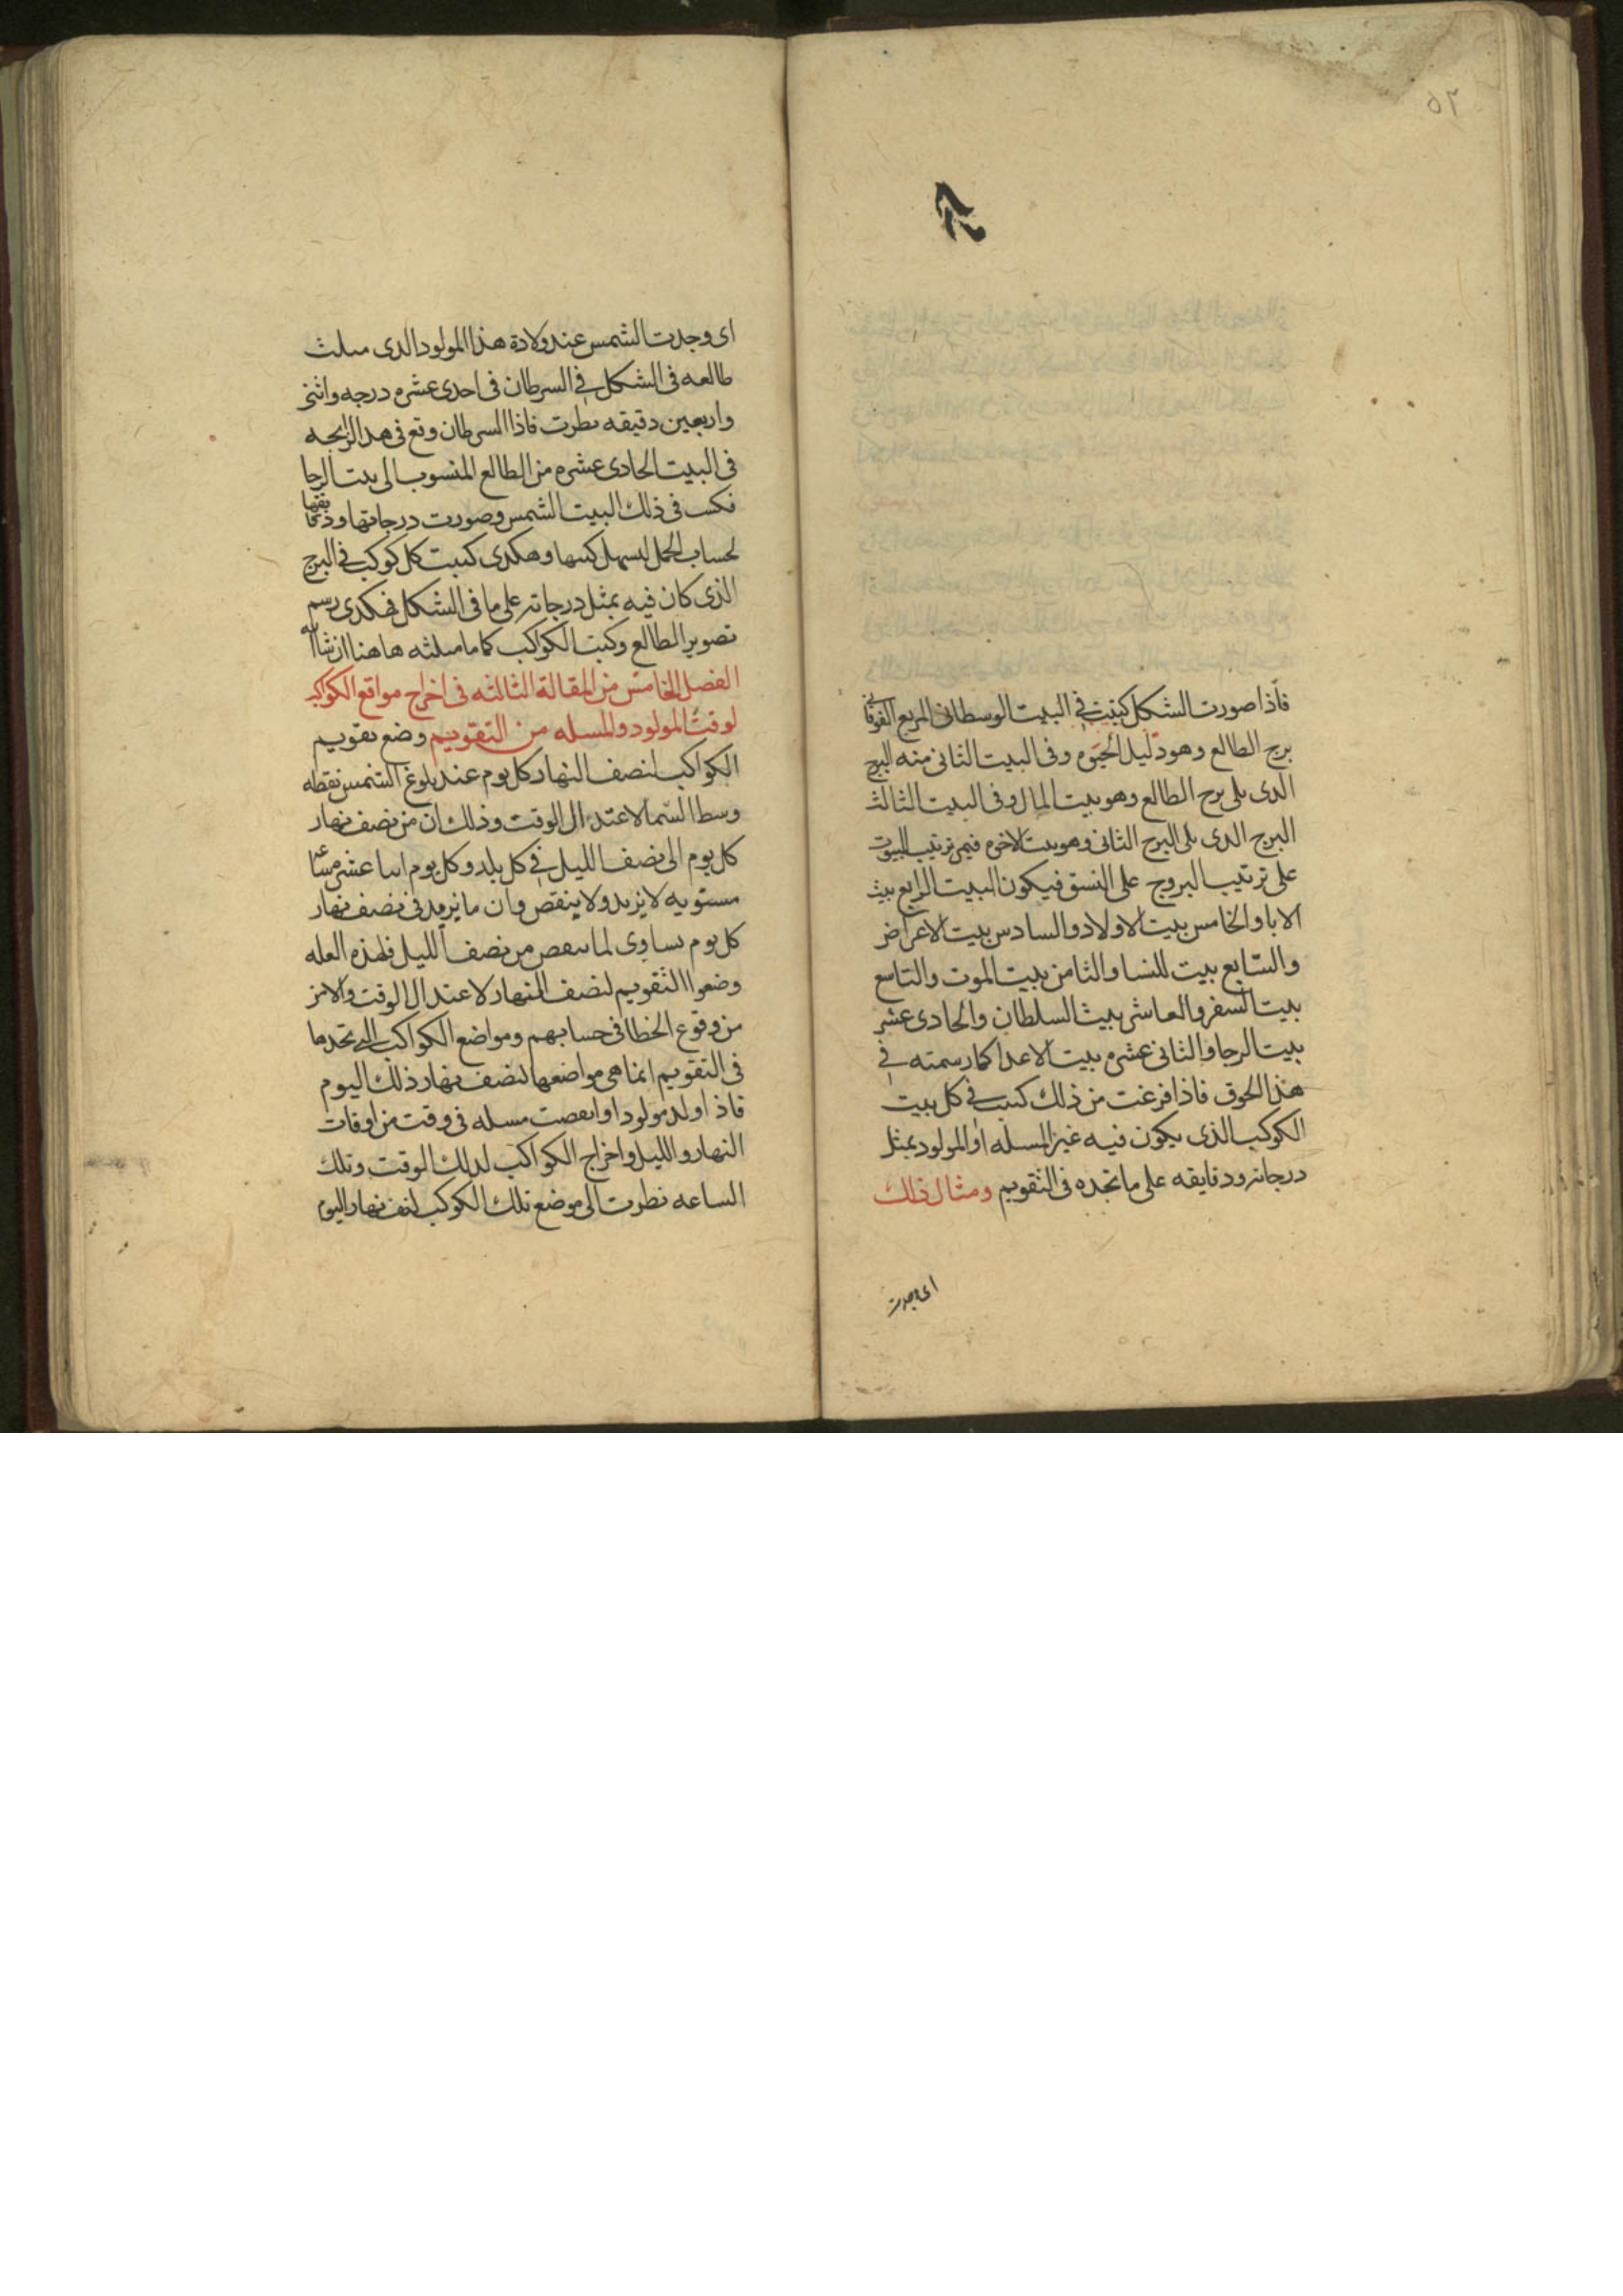 ٥٢
فاذا صورت الشكل كتبت في البيت الوسطاني المربع الفوقاني
برج الطالع وهو دليل الحيوه وفى البيت الثانى منه البرج
الدى يلى برج الطالع وهو بيت المال وفى البيت الثالث
البرج الدى يلى البرج الثانى وهو بيت الاخوه فيمر ترتيب البيوت
على ترتيب البروج على النسق فيكون البيت الرابع بيت
الابا والخامس بيت الاولاد والسادس بيت الاعراض
والسابع بيت للنسا والثامن بيت الموت والتاسع
بيت السفر والعاشر بيت السلطان والحادى عشر
بيت الرجا والثانى عشره بيت الاعدا كما رسمته في
هذا الحوق فاذا فرغت من ذلك كتبت في كل بيت
الكوكب الذى يكون فيه غير المسله او المولود بمثل
درجاته ودقايقه على ما تجده فى التقويم ومثال ذلك
اى وجدت
اى وجدت الشمس عند ولادة هذا المولود الدى مثلت
طالعه فى الشكل في السرطان فى احدى عشره درجه واثنين
واربعين دقيقه نظرت فاذا السرطان وقع فى هدا الزايجه
فى البيت الحادى عشره من الطالع المنسوب الى بيت الرجا
فكتبت فى ذلك البيت الشمس وصورت درجاتها ودقايقها
لحساب الجمل ليسهل كتبها وهكدى كتبت كل كوكب في البرج
الذى كان فيه بمثل درجاته على ما فى الشكل فهكدى رسم
تصوير الطالع وكتبت الكواكب كما ما مثلته هاهنا ان شا الله
الفصل الخامس من المقالة الثالثه فى اخراج مواقع الكواكب
لوقت المولود والمسله من التقويم وضع تقويم
الكواكب لنصف النهار كل يوم عند بلوغ الشمس نقطه
وسط السما لاعتدال الوقت وذلك ان من نصف نهار
كل يوم الى نصف الليل في كل بلد وكل يوم اثنا عشر ساعه
مستويه لا يزيد ولا ينقص وان ما يزيد فى نصف نهار
كل يوم يساوى لما ينقص من نصف الليل فلهذه العله
وضعوا التقويم لنصف النهار لاعتدال الوقت والامن
من وقوع الخطا فى حسابهم ومواضع الكواكب التى تجدها
فى التقويم انما هى مواضعها لنصف نهار ذلك اليوم
فاذا ولد مولود او اتفقت مسله فى وقت من اوقات
النهار والليل واخراج الكواكب لدلك الوقت وتلك
الساعه نظرت الى موضع تلك الكوكب لنصف نهار اليوم